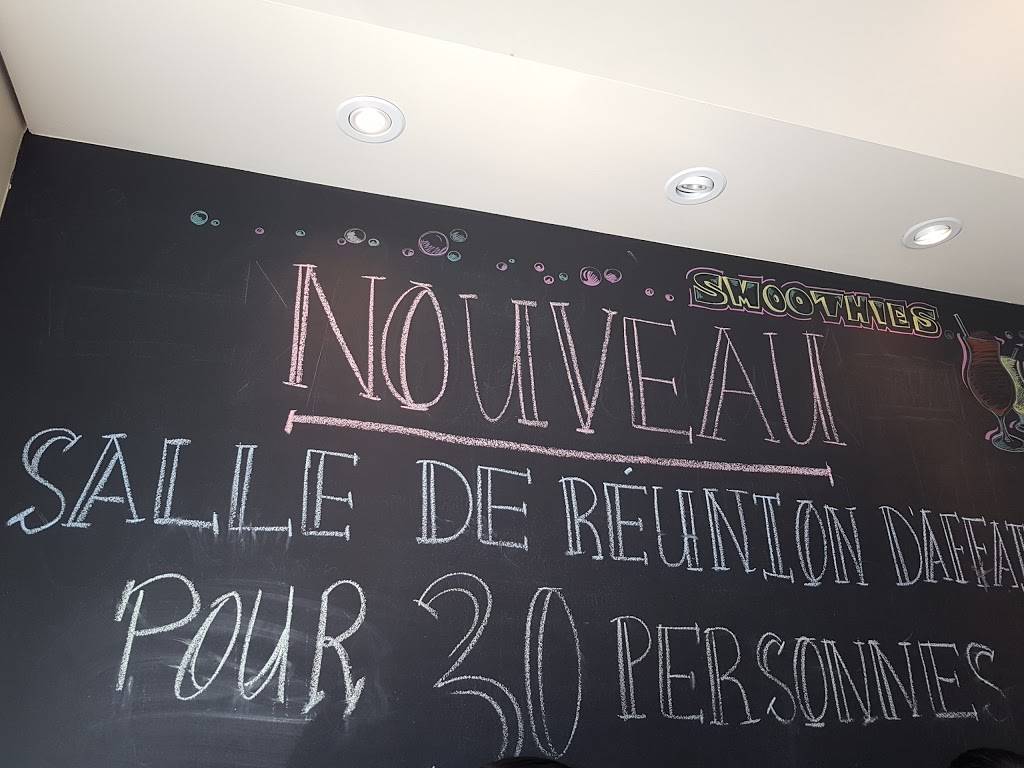 SMOOTHIES
NOUVEAU
SALLE DE RÉUNION
POUR 30 PERSONNES